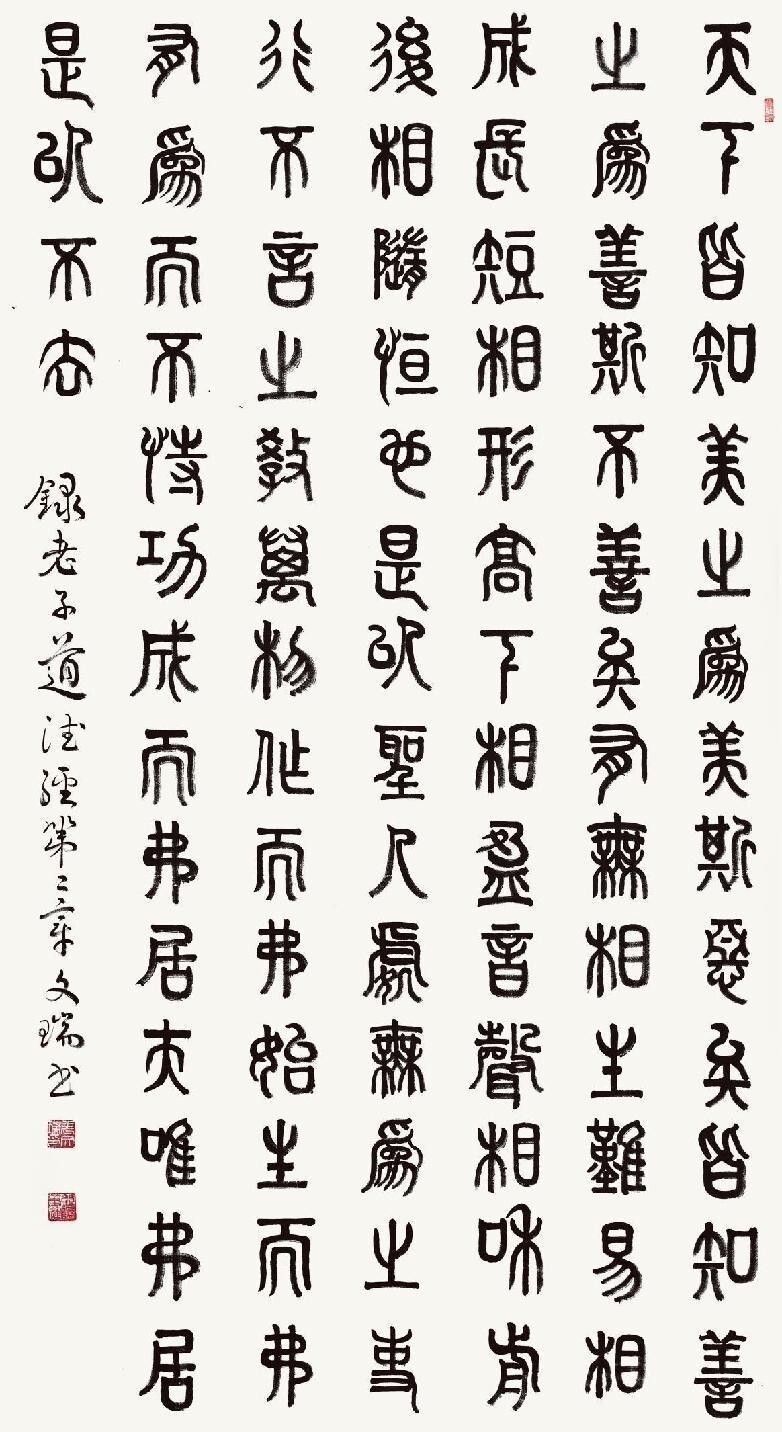 天下皆知美之爲美斯惡矣皆知善
之爲善斯不善矣有無相生難易相
成長短相形高下相盈音聲相和前
後相隨恒也是以聖人處無爲之事
行不言之教萬物作而弗始生而弗
有爲而不恃功成而弗居夫唯弗居
是以不去 錄老子道德經第二章文瑞書